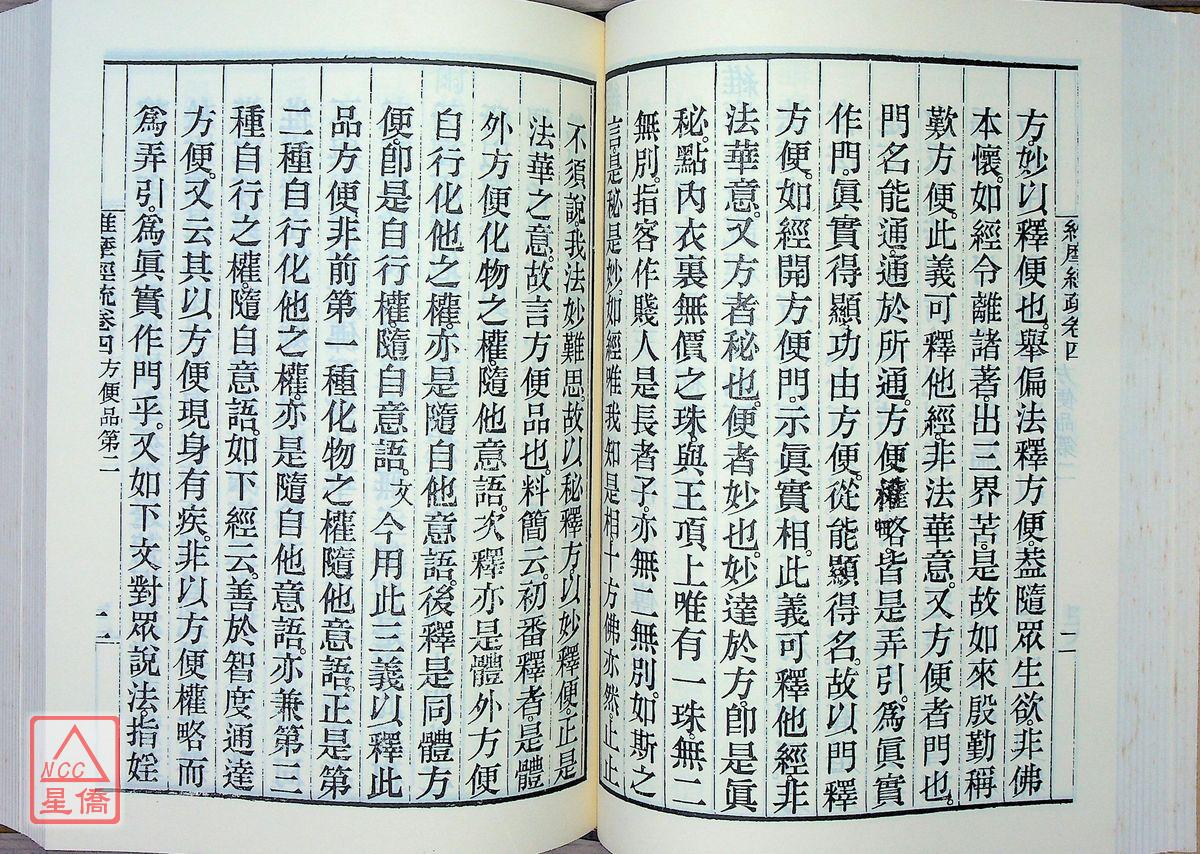 方。妙以釋便也。舉偏法釋方便。葢隨眾生欲。非佛
本懷。如經令離諸著。出三界苦。是故如來殷勤稱
歎方便。此義可釋他經。非法華意。又方便者門也。
門名能通。通於所通。方便權略。皆是弄引。爲眞實
作門。眞實得顯。功由方便。從能顯得名。故以門釋
方便。如經開方便門。示眞實相。此義可釋他經。非
法華意。又方者秘也。便者妙也。妙達於方。卽是眞
秘。點內衣裏無價之珠。與王頂上唯有一珠。無二
無別。指客作賤人是長者子。亦無二無別。如斯之
言。是秘是妙。如經唯我知是相。十方佛亦然。止止
不須說。我法妙難思。故以秘釋方。以妙釋便。正是
法華之意。故言方便品也。料簡云。初番釋者。是體
外方便。化物之權。隨他意語。次釋亦是體外方便
自行化他之權。亦是隨自他意語。後釋是同體方
便。卽是自行權。隨自意語。文 今用此三義以釋此
品方便。非前第一種化物之權隨他意語。正是第
二種自行化他之權。亦是隨自他意語。亦兼第三
種自行之權。隨自意語。如下經云。善於智度通達
方便。又云其以方便現身有疾。非以方便權略而
爲弄引。爲眞實作門乎。又如下文對眾說法。指姪
維摩經疏卷四
二
維摩經疏卷四 方便品第二
二
NCC
星僑